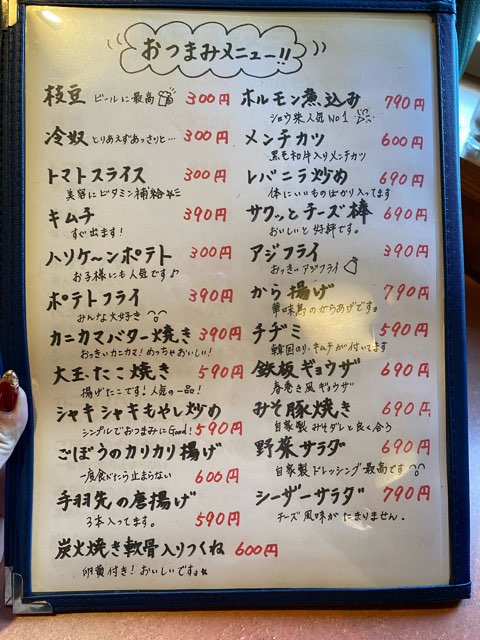 おつまみメニュー!!
枝豆 ビールに最高 300円
冷奴 とりあえずあっさりと… 300円
トマトスライス 300円
美容にビタミン補給
キムチ 390円
すぐ出ます!
ハソゲ〜ンポテト 300円
お子様にも人気です♪
ポテトフライ 390円
みんな大好き
カニカマバター焼き 390円
おっきいカニカマ!めっちゃおいしい!
大王たこ焼き 590円
揚げたこです!人気の一品!
シャキシャキもやし炒め
シンプルでおつまみにGood! 590円
ごぼうのカリカリ揚げ
一度食べたら止まらない 600円
手羽先の唐揚げ
3本入ってます。 590円
炭火焼き軟骨入りつくね 600円
卵黄付き!おいしいです。
ホルモン煮込み 790円
ショウ来人気No1
メンチカツ 600円
黒毛和牛入りメンチカツ
レバニラ炒め 690円
体にいいものばかり入ってます
サクッとチーズ棒 690円
おいしいと好評です。
アジフライ 390円
おっきいアジフライ
から揚げ 790円
華味鳥のからあげです。
チヂミ 590円
韓国のり、キムチが付いてます
鉄板ギョウザ 690円
春巻き風ギョウザ
みそ豚焼き 690円
自家製みそダレと良く合う
野菜サラダ 690円
自家製ドレッシング最高です
シーザーサラダ 790円
チーズ風味がたまりません。